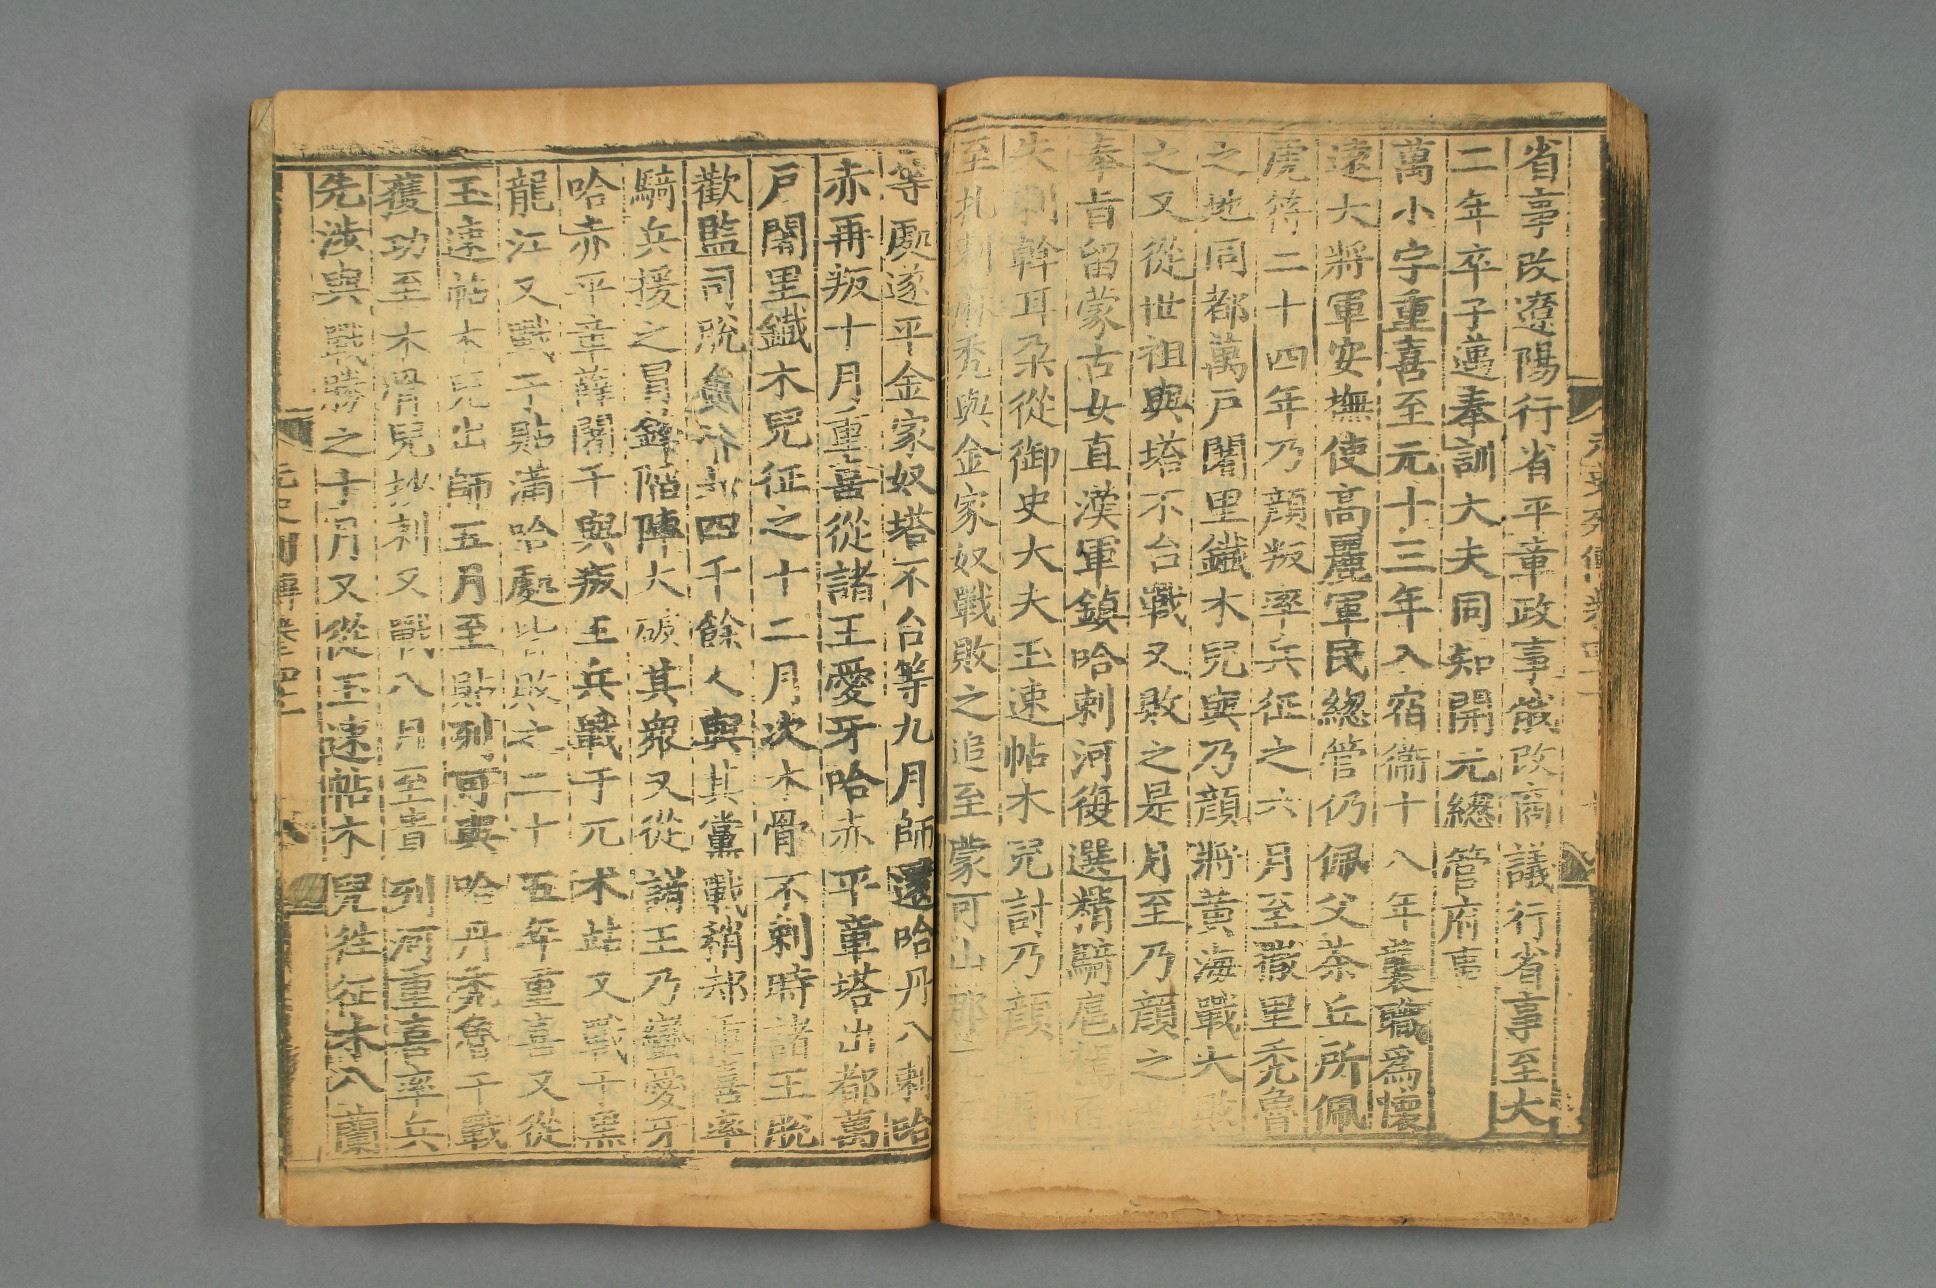 省事改遼陽行省平章政事俄改商議行省事至大
二年卒子萬奉訓大夫同知開元總管府事
萬小字重喜至元十三年入宿衞十八年襲職爲懷
遠大將軍安撫使高麗軍民總管仍佩父茶丘所佩
虎符二十四年乃顔叛率兵征之六月至撒里禿魯
之地同都萬戸闍里鐵木兒與乃顔將黃海戰大敗
之又從世祖與塔不台戰又敗之是月至乃顔之
奉旨留蒙古女直漢軍鎮哈剌河復選精騎扈
失剌斡耳朶從御史大夫玉速帖木兒討乃顔
至扎剌麻禿與金家奴戰敗之追至蒙可山那
等處遂平金家奴塔不台等九月師還哈丹八剌哈
赤再叛十月重喜從諸王愛牙哈赤平章塔出都萬
戸闍里鐵木兒征之十二月次木骨不剌時諸王脫
歡監司脫 四千餘人與其黨戰稍却重喜率
騎兵援之冒鋒陷陣大破其衆又從諸王乃蠻愛牙
哈赤平章薛闍干與叛王兵戰于兀术站又戰于黑
龍江又戰于貼滿哈處皆敗之二十五年重喜又從
玉速帖木兒出師五月至貼列可與哈丹禿魯干戰
獲功至木骨兒抄剌又戰八月至貴列河重喜率兵
先涉與戰勝之十月又從玉速帖木兒往征木八蘭
元史列傳卷四十一